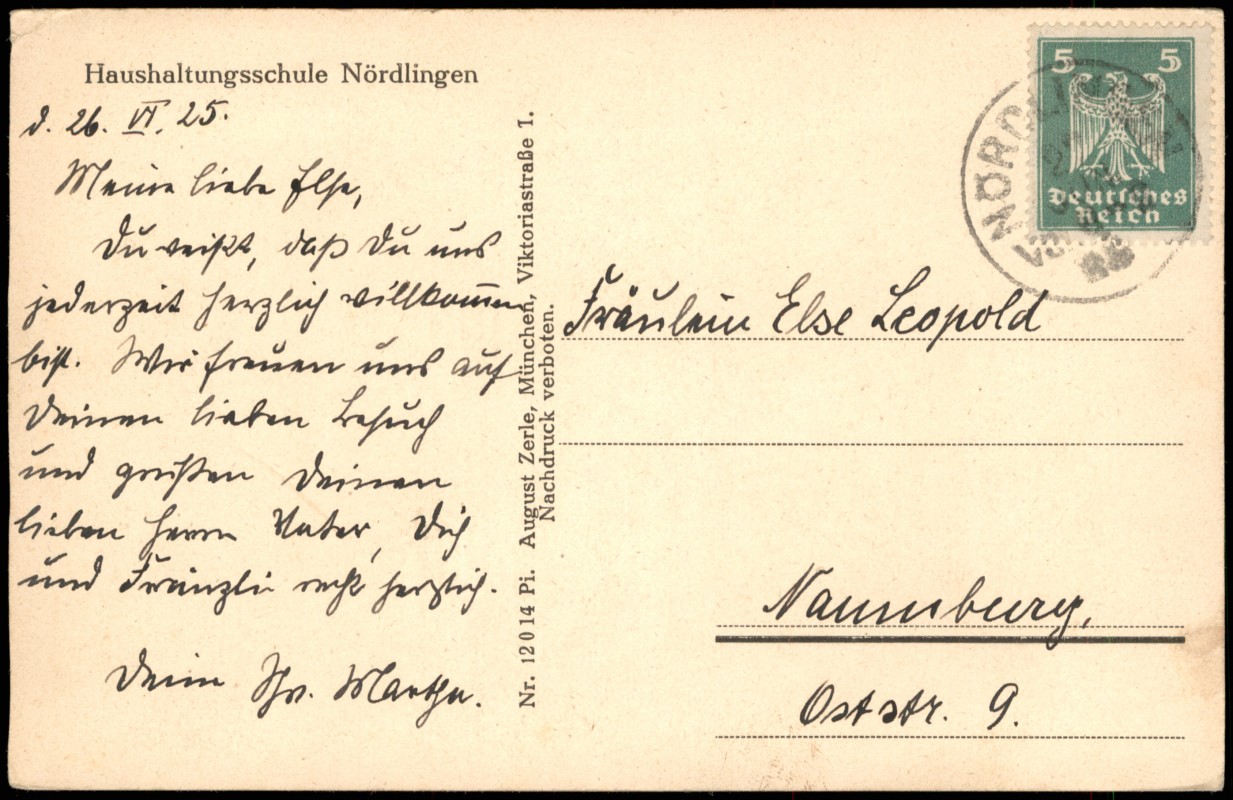 Haushaltungsschule Nördlingen
d. 26. VI. 25.
Meine liebe Else,
Du weißt, daß Du uns
jederzeit herzlich willkommen
bist. Wir freuen uns auf
Deinen lieben Besuch
und grüßen Deinen
lieben Herrn Vater, Dich
und Fränzli recht herzlich.
Deine Schw. Martha.
Nr. 12014 Pi. August Zerle, München, Viktoriastraße 1.
Nachdruck verboten.
5 5
Deutsches
Reich
Fräulein Else Leopold
Naumburg,
Oststr. 9.